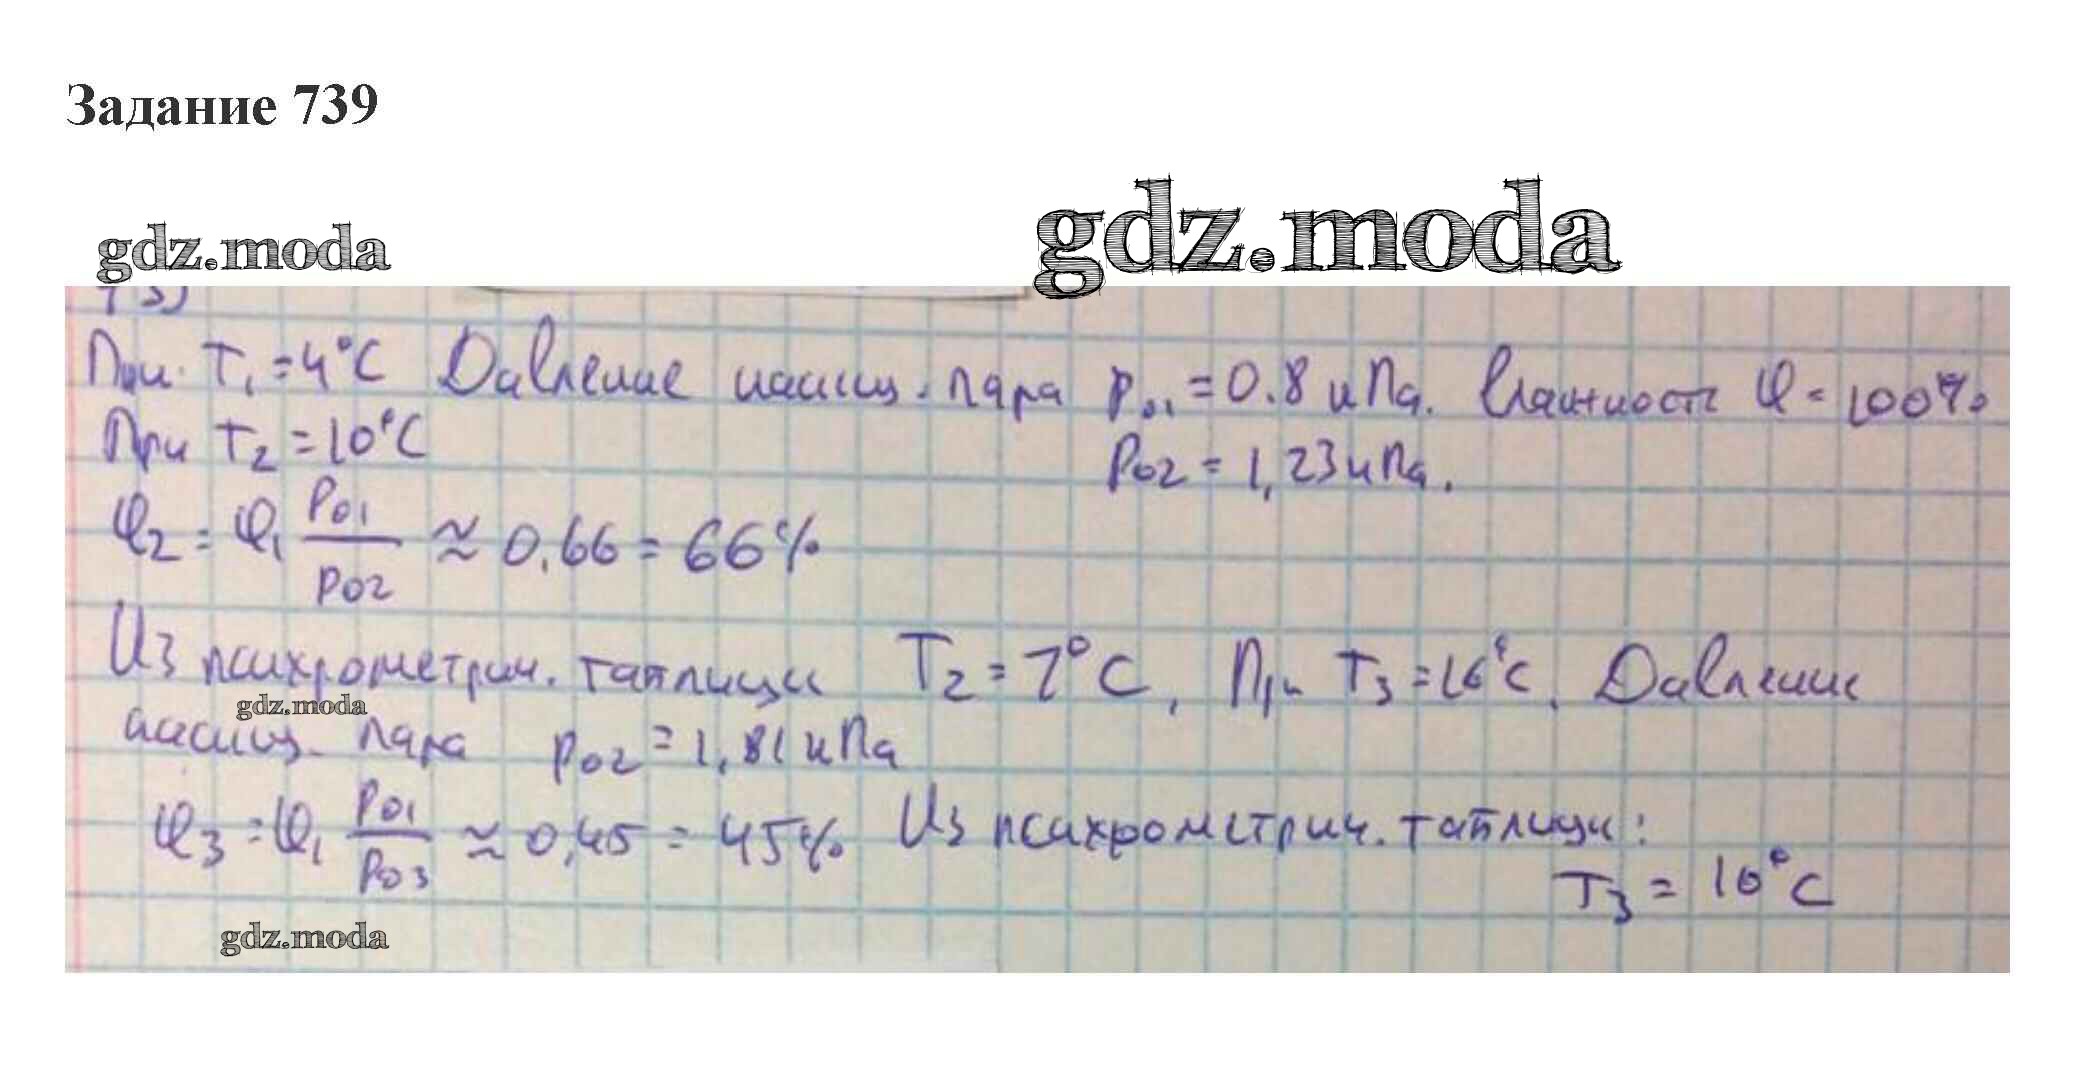 Задание 739
gdz.moda
gdz.moda
При T₁=4°C Давление насыщ. пара p₀₁=0.8 кПа. Влажность φ=100%
При T₂=10°C p₀₂=1,23 кПа.
φ₂=φ₁ p₀₁/p₀₂ ≈ 0,66 = 66%
Из психрометрич. таблицы T₂=7°C, При T₃=16°C. Давление
gdz.moda
насыщ. пара p₀₂=1,81 кПа
φ₃=φ₁ p₀₁/p₀₃ ≈ 0,45 = 45% Из психрометрич. таблицы:
T₃ = 10°C
gdz.moda